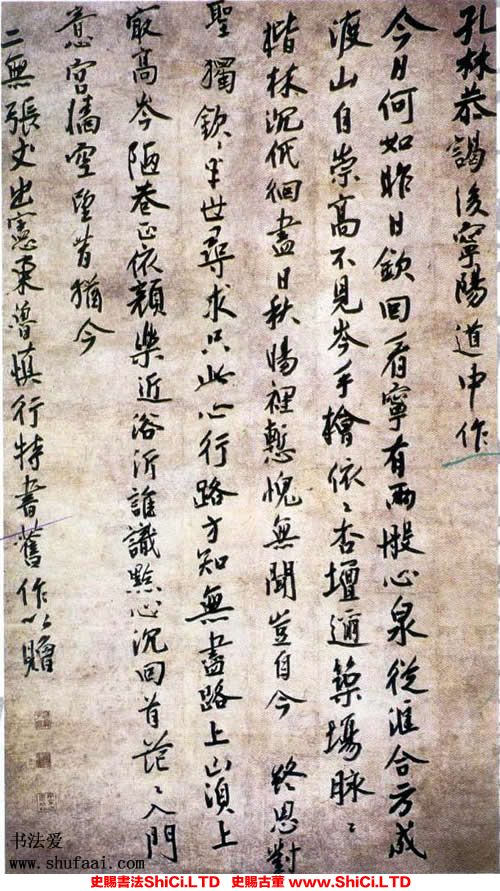 孔林恭謁後寧陽道中作
今日何如昨日欽回看寧有兩般心泉從滙合方成
海山自崇高不見岑手檜依〻杏壇適築場脉〻
楷林沉低徊盡日秋陽裡慙愧無聞豈自今 終思對
聖獨欽〻半世尋求只此心行路方知無盡路上山須上
最高岑陋巷正依顏樂近浴沂誰識點心沉回首茫〻入門
意宮牆空望昔猶今
二無張丈出憲東魯慎行特書舊作以贈
书法爱
www.shufaai.com
史賜書法ShiCi.LTD 史賜古董 www.ShiCi.LTD